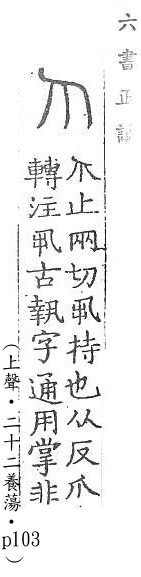 六書正
止兩切丮持也从反爪
轉注丮古執字通用掌非
（上聲・二十二養蕩・p103）